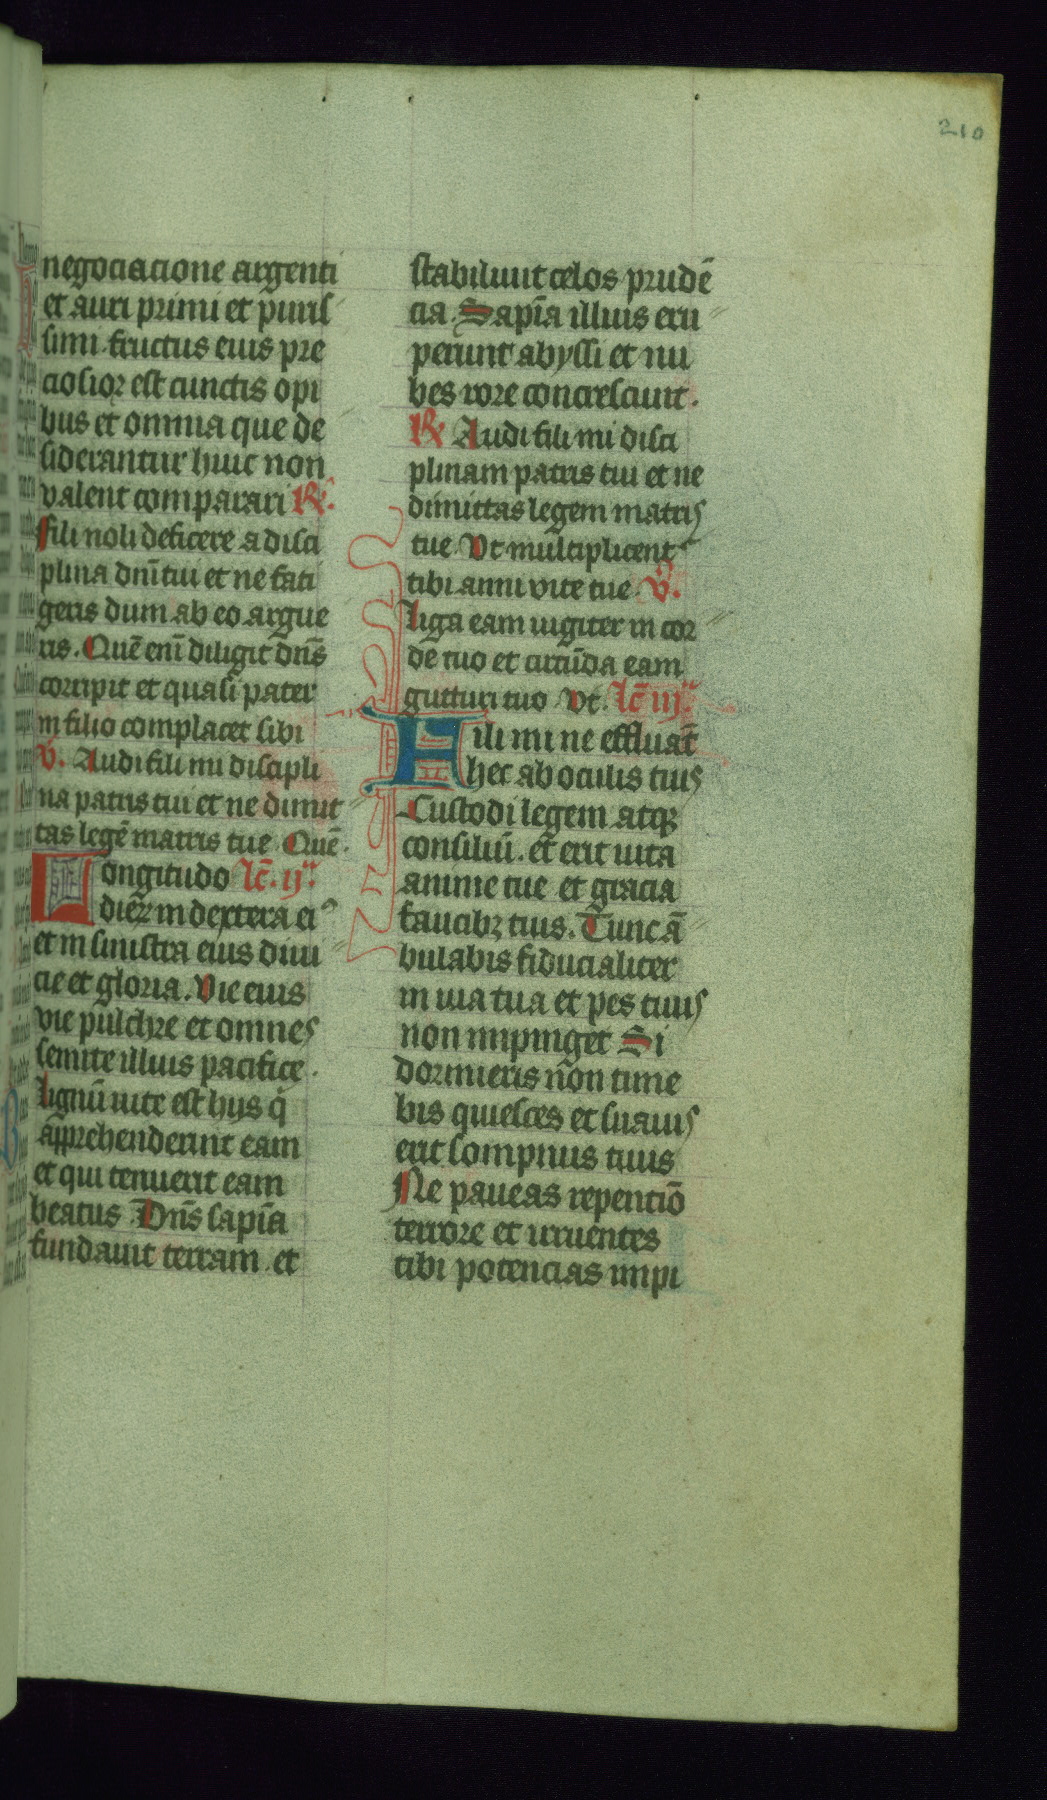 210
negociacione argenti
et auri primi et puris
simi fructus eius pre
ciosior est cunctis opi
bus et omnia que de
siderantur huic non
valent comparari R̃.
Fili noli deficere a disci
plina dñi tui et ne fati
geris dum ab eo argue
ris. Quẽ enĩ diligit dñs
corripit et quasi pater
in filio complacet sibi
V̾. Audi fili mi discipli
na patris tui et ne dimit
tas legẽ matris tue Quẽ.
Longitudo lc̃. ijᵃ.
dieꝝ in dextera eiꝰ
et in sinistra eius diui
cie et gloria. Vie eius
vie pulchre et omnes
semite illius pacifice.
Lignũ uite est hys q̃
apprehenderint eam
et qui tenuerit eam
beatus Dñs sapĩa
fundauit terram et
stabiliuit celos prudẽ
cia. Sapĩa illius eru
perunt abyssi et nu
bes rore concrescunt.
R̃ Audi fili mi disci
plinam patris tui et ne
dimittas legem matris
tue Vt multiplicent᷑
tibi anni vite tue. V̾.
Liga eam iugiter in cor
de tuo et circũda eam
gutturi tuo Vt. lc̃ iijᵃ.
Fili mi ne effluãt
hec ab oculis tuis
Custodi legem atqꝫ
consiliũ. et erit uita
anime tue et gracia
faucibꝫ tuis. Tunc ã
bulabis fiducialiter
in uia tua et pes tuus
non impinget Si
dormieris non time
bis quiesces et suauis
erit sompnus tuus
Ne paueas repentiõ
terrore et irruentes
tibi potencias impi